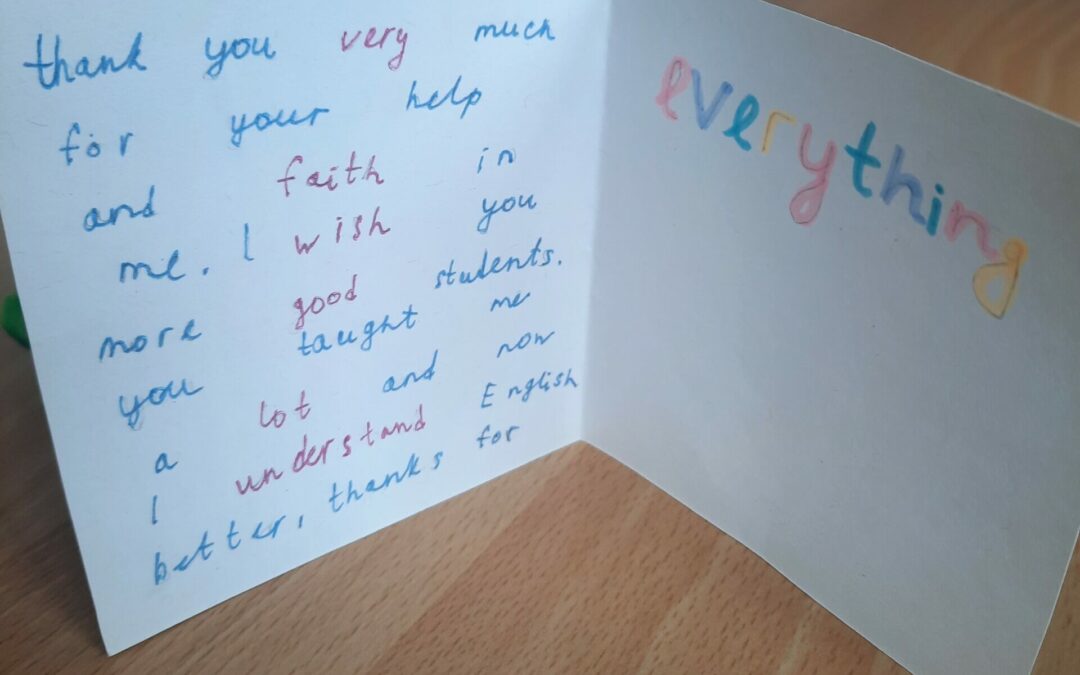 thank you very much
for your help
and faith in
me. I wish you
more good students.
you taught me
a lot and now
I understand English
better, thanks for
everything